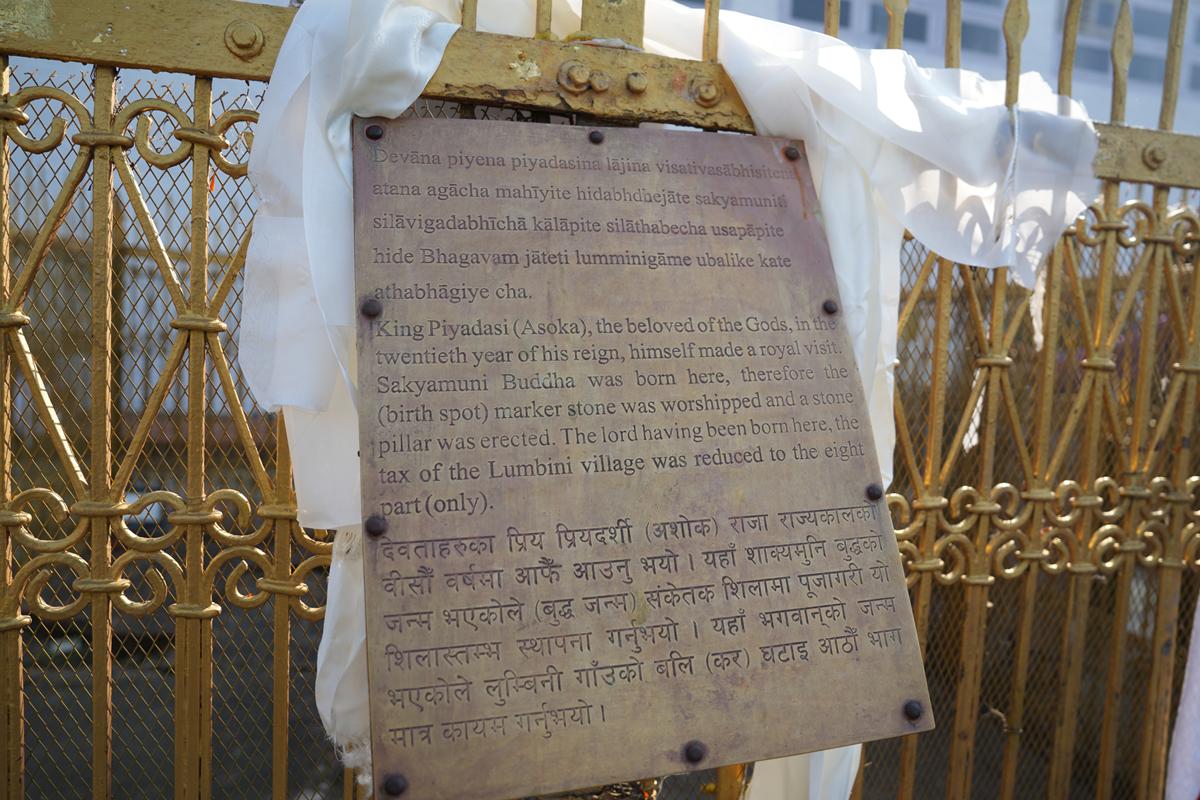 Devāna piyena piyadasina lājina visativasābhisitena
atana agācha mahīyite hidabhdhejāte sakyamuniti
silāvigadabhīchā kālāpite silāthabecha usapāpite
hide Bhagavam jāteti lumminigāme ubalike kate
athabhāgiye cha.
King Piyadasi (Asoka), the beloved of the Gods, in the
twentieth year of his reign, himself made a royal visit.
Sakyamuni Buddha was born here, therefore the
(birth spot) marker stone was worshipped and a stone
pillar was erected. The lord having been born here, the
tax of the Lumbini village was reduced to the eight
part (only).
देवताहरुका प्रिय प्रियदर्शी (अशोक) राजा राज्यकालको
वीसौं वर्षमा आफैं आउनु भयो । यहाँ शाक्यमुनि बुद्धको
जन्म भएकोले (बुद्ध जन्म) संकेतक शिलामा पूजागरी यो
शिलास्तम्भ स्थापना गर्नुभयो । यहाँ भगवान्को जन्म
भएकोले लुम्बिनी गाँउको बलि (कर) घटाइ आठौं भाग
मात्र कायम गर्नुभयो ।